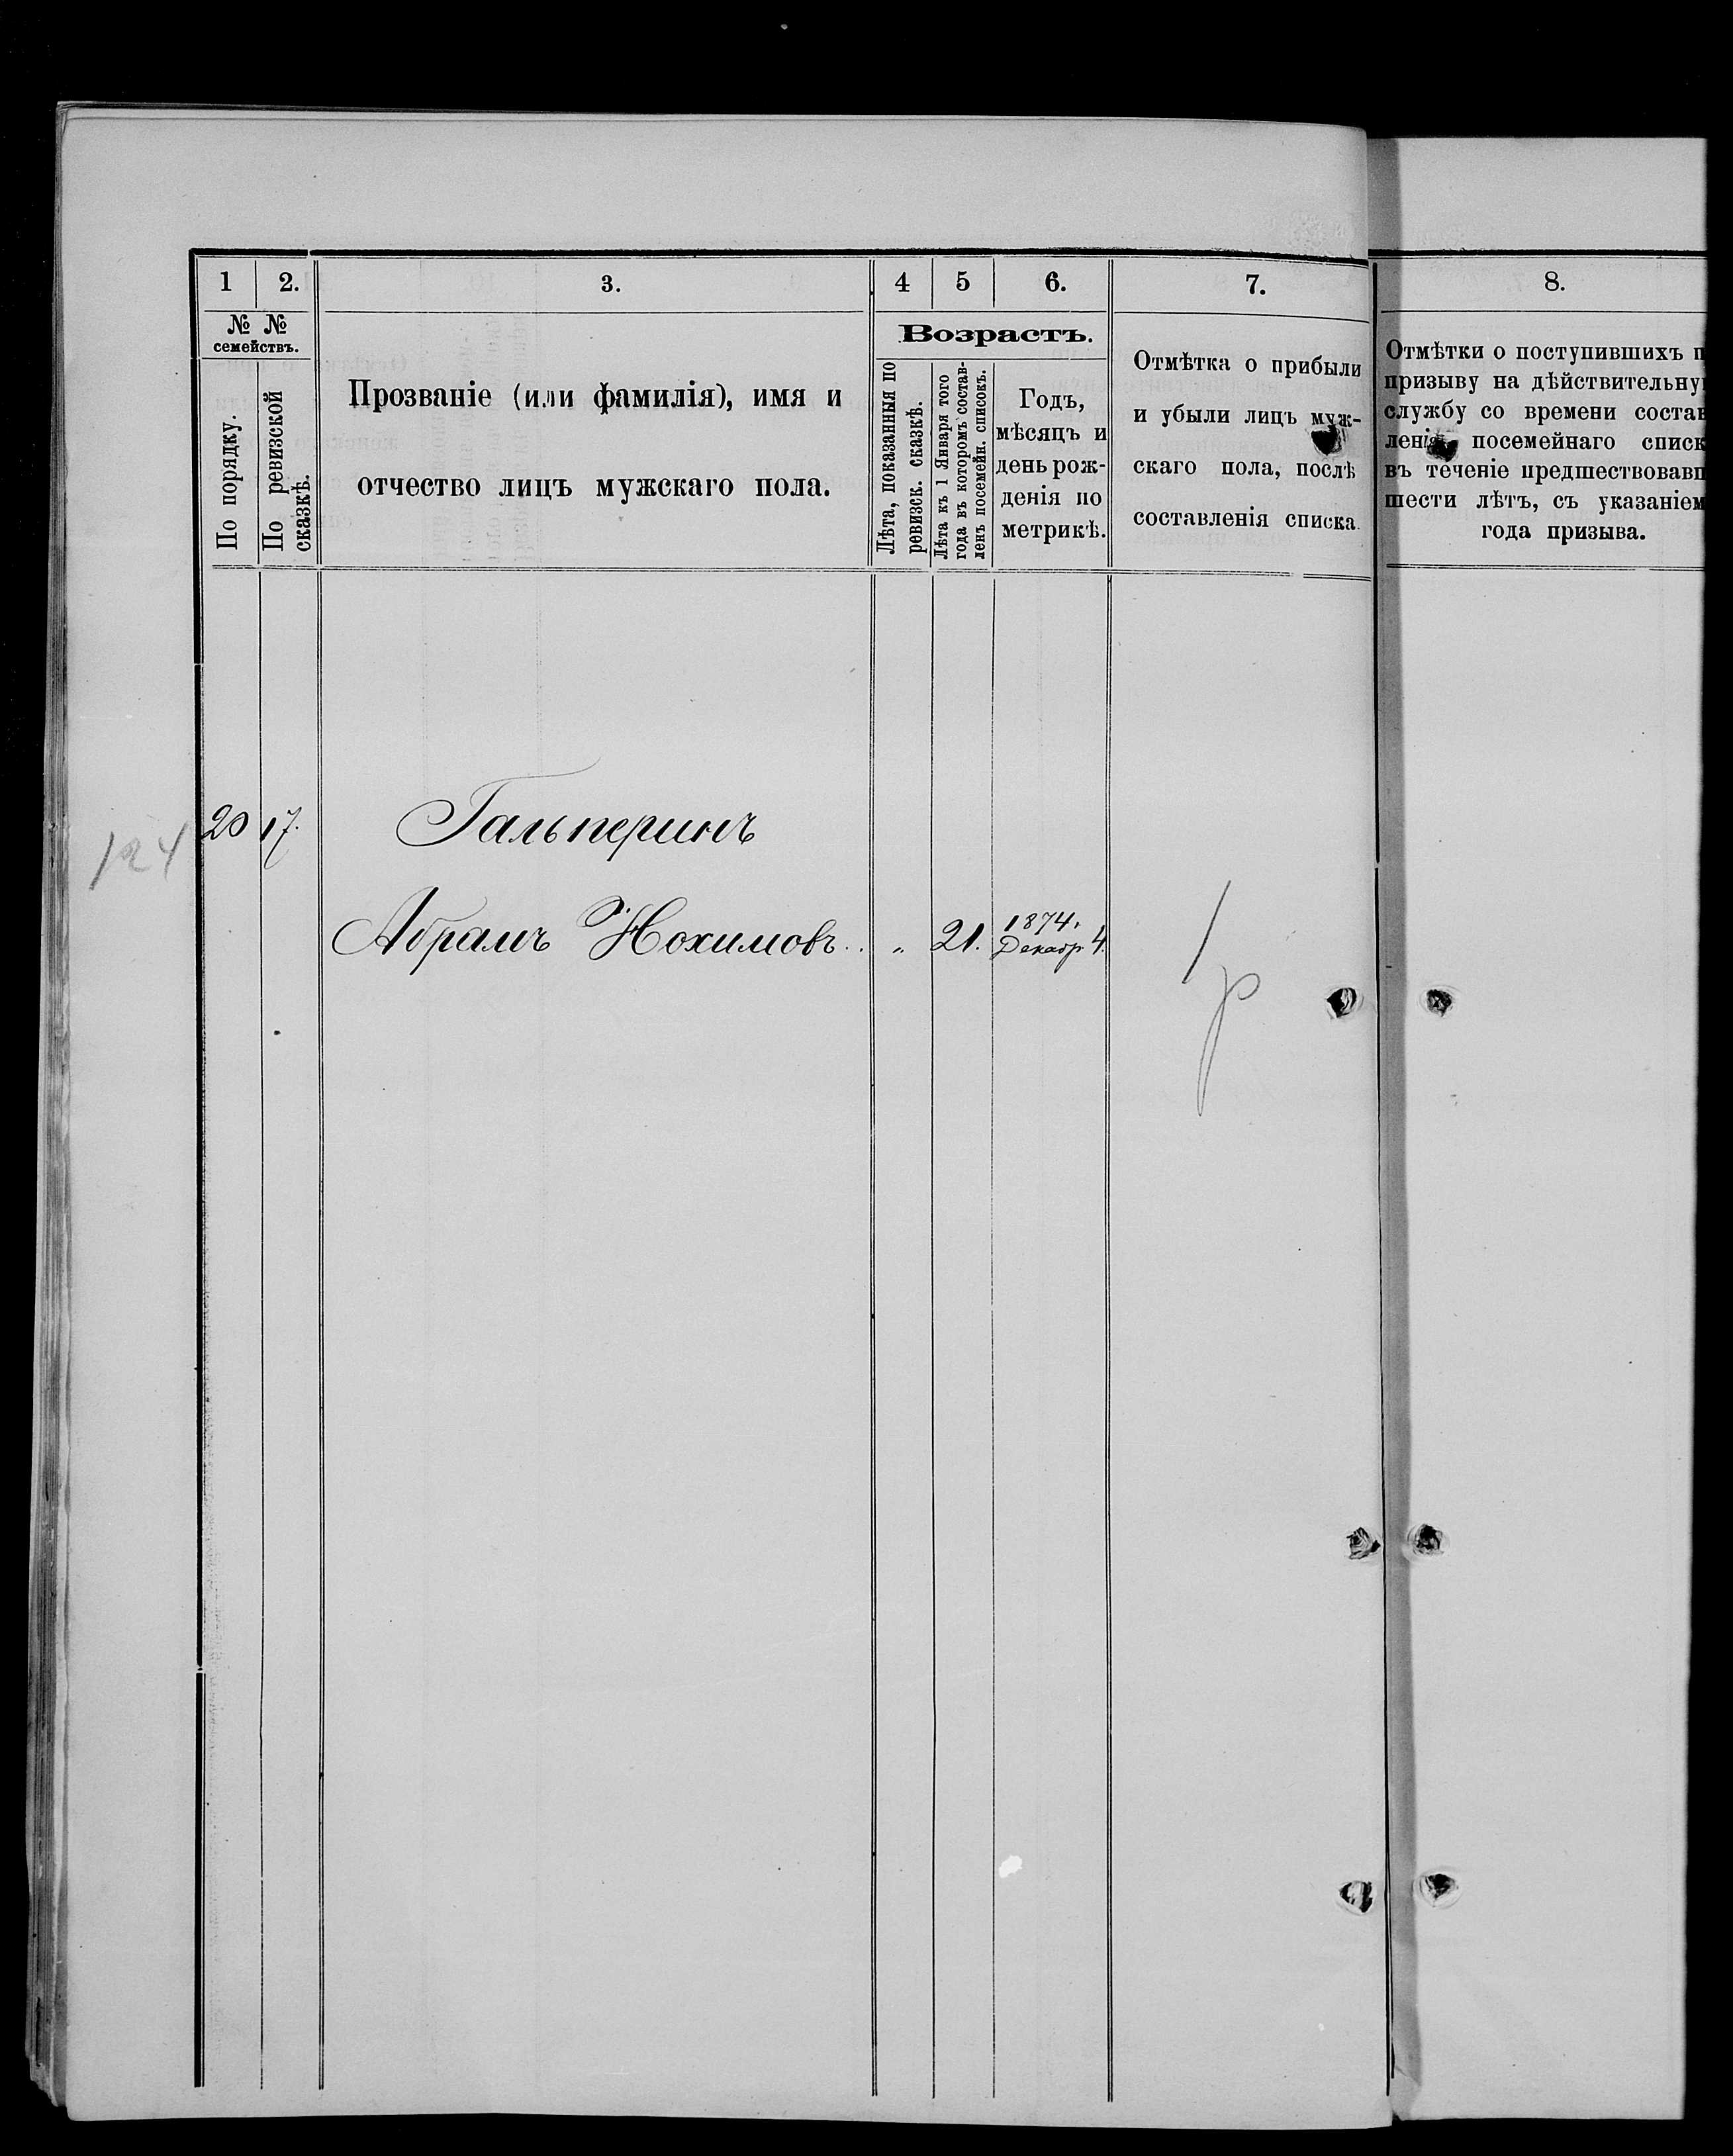 1 2. 3. 4 5 6. 7. 8.
№ №
семействъ.
По порядку.
По ревизской
сказкѣ.
Прозваніе (или фамилія), имя и
отчество лицъ мужскаго пола.
Возрастъ.
Лѣта, показанныя по
ревизск. сказкѣ.
Лѣта къ 1 Января того
года въ которомъ состав-
ленъ посемейн. списокъ.
Годъ,
мѣсяцъ и
день рож-
денія по
метрикѣ.
Отмѣтка о прибыли
и убыли лицъ муж-
скаго пола, послѣ
составленія списка.
Отмѣтки о поступившихъ п
призыву на дѣйствительну
службу со времени состав
ленія посемейнаго списк
въ теченіе предшествовавш
шести лѣтъ, съ указаніем
года призыва.
124 20 17. Гальперинъ
Абрамъ Нохимовъ.. „ 21. 1874.
Декабр 4.
1
р